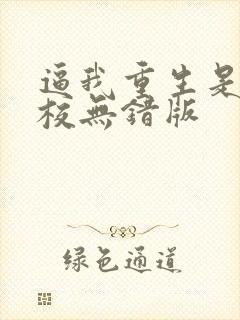 逼我重生是
校無錯版
綠色通道